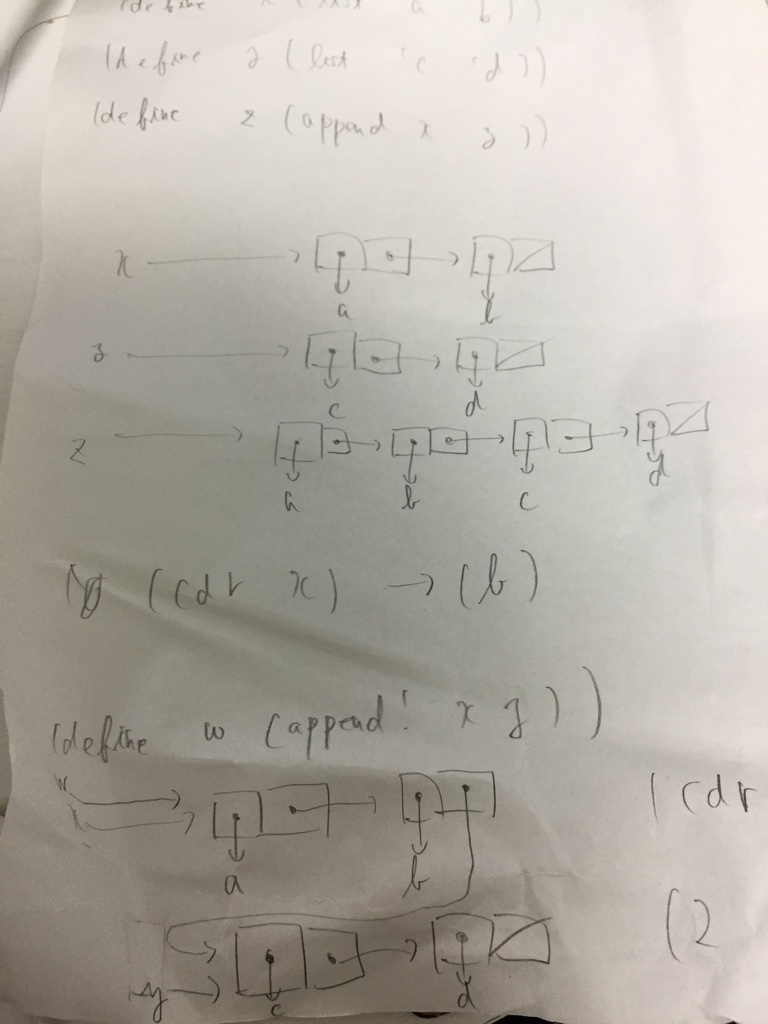 (define x (list 'a 'b))
(define y (list 'c 'd))
(define z (append x y))
x
a b
y
c d
z
a b c d
(cdr x) → (b)
(define w (append! x y))
w
x
(cdr
a b
(2
y
c d